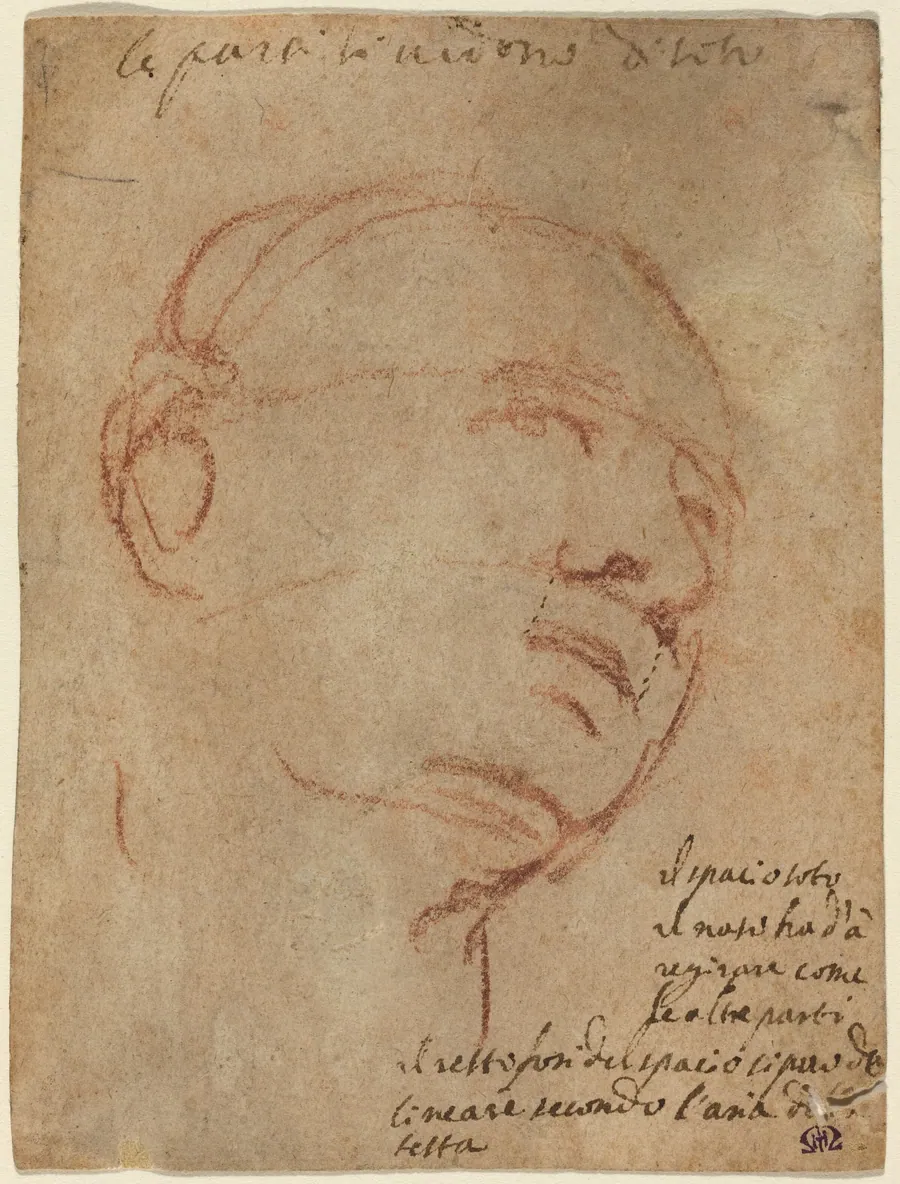 le parti si vedono di soto
il spacio soto
il naso ha d'à
regirare come
le altre parti
il resto fori del spacio si puo de
lineare secondo l'aria di
testa